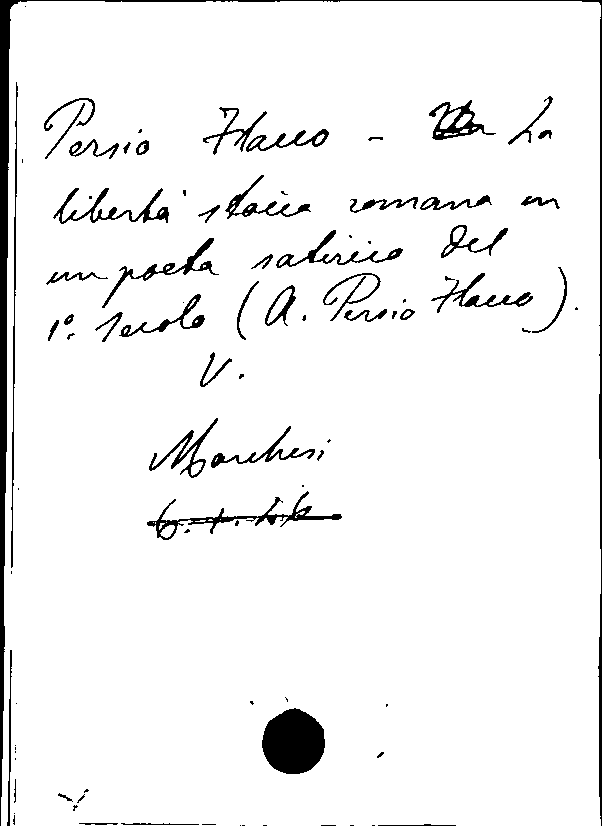 Persio Flacco - La
libertà stoica romana in
un poeta satirico del
1º. secolo (A. Persio Flacco).
V.
Marchesi